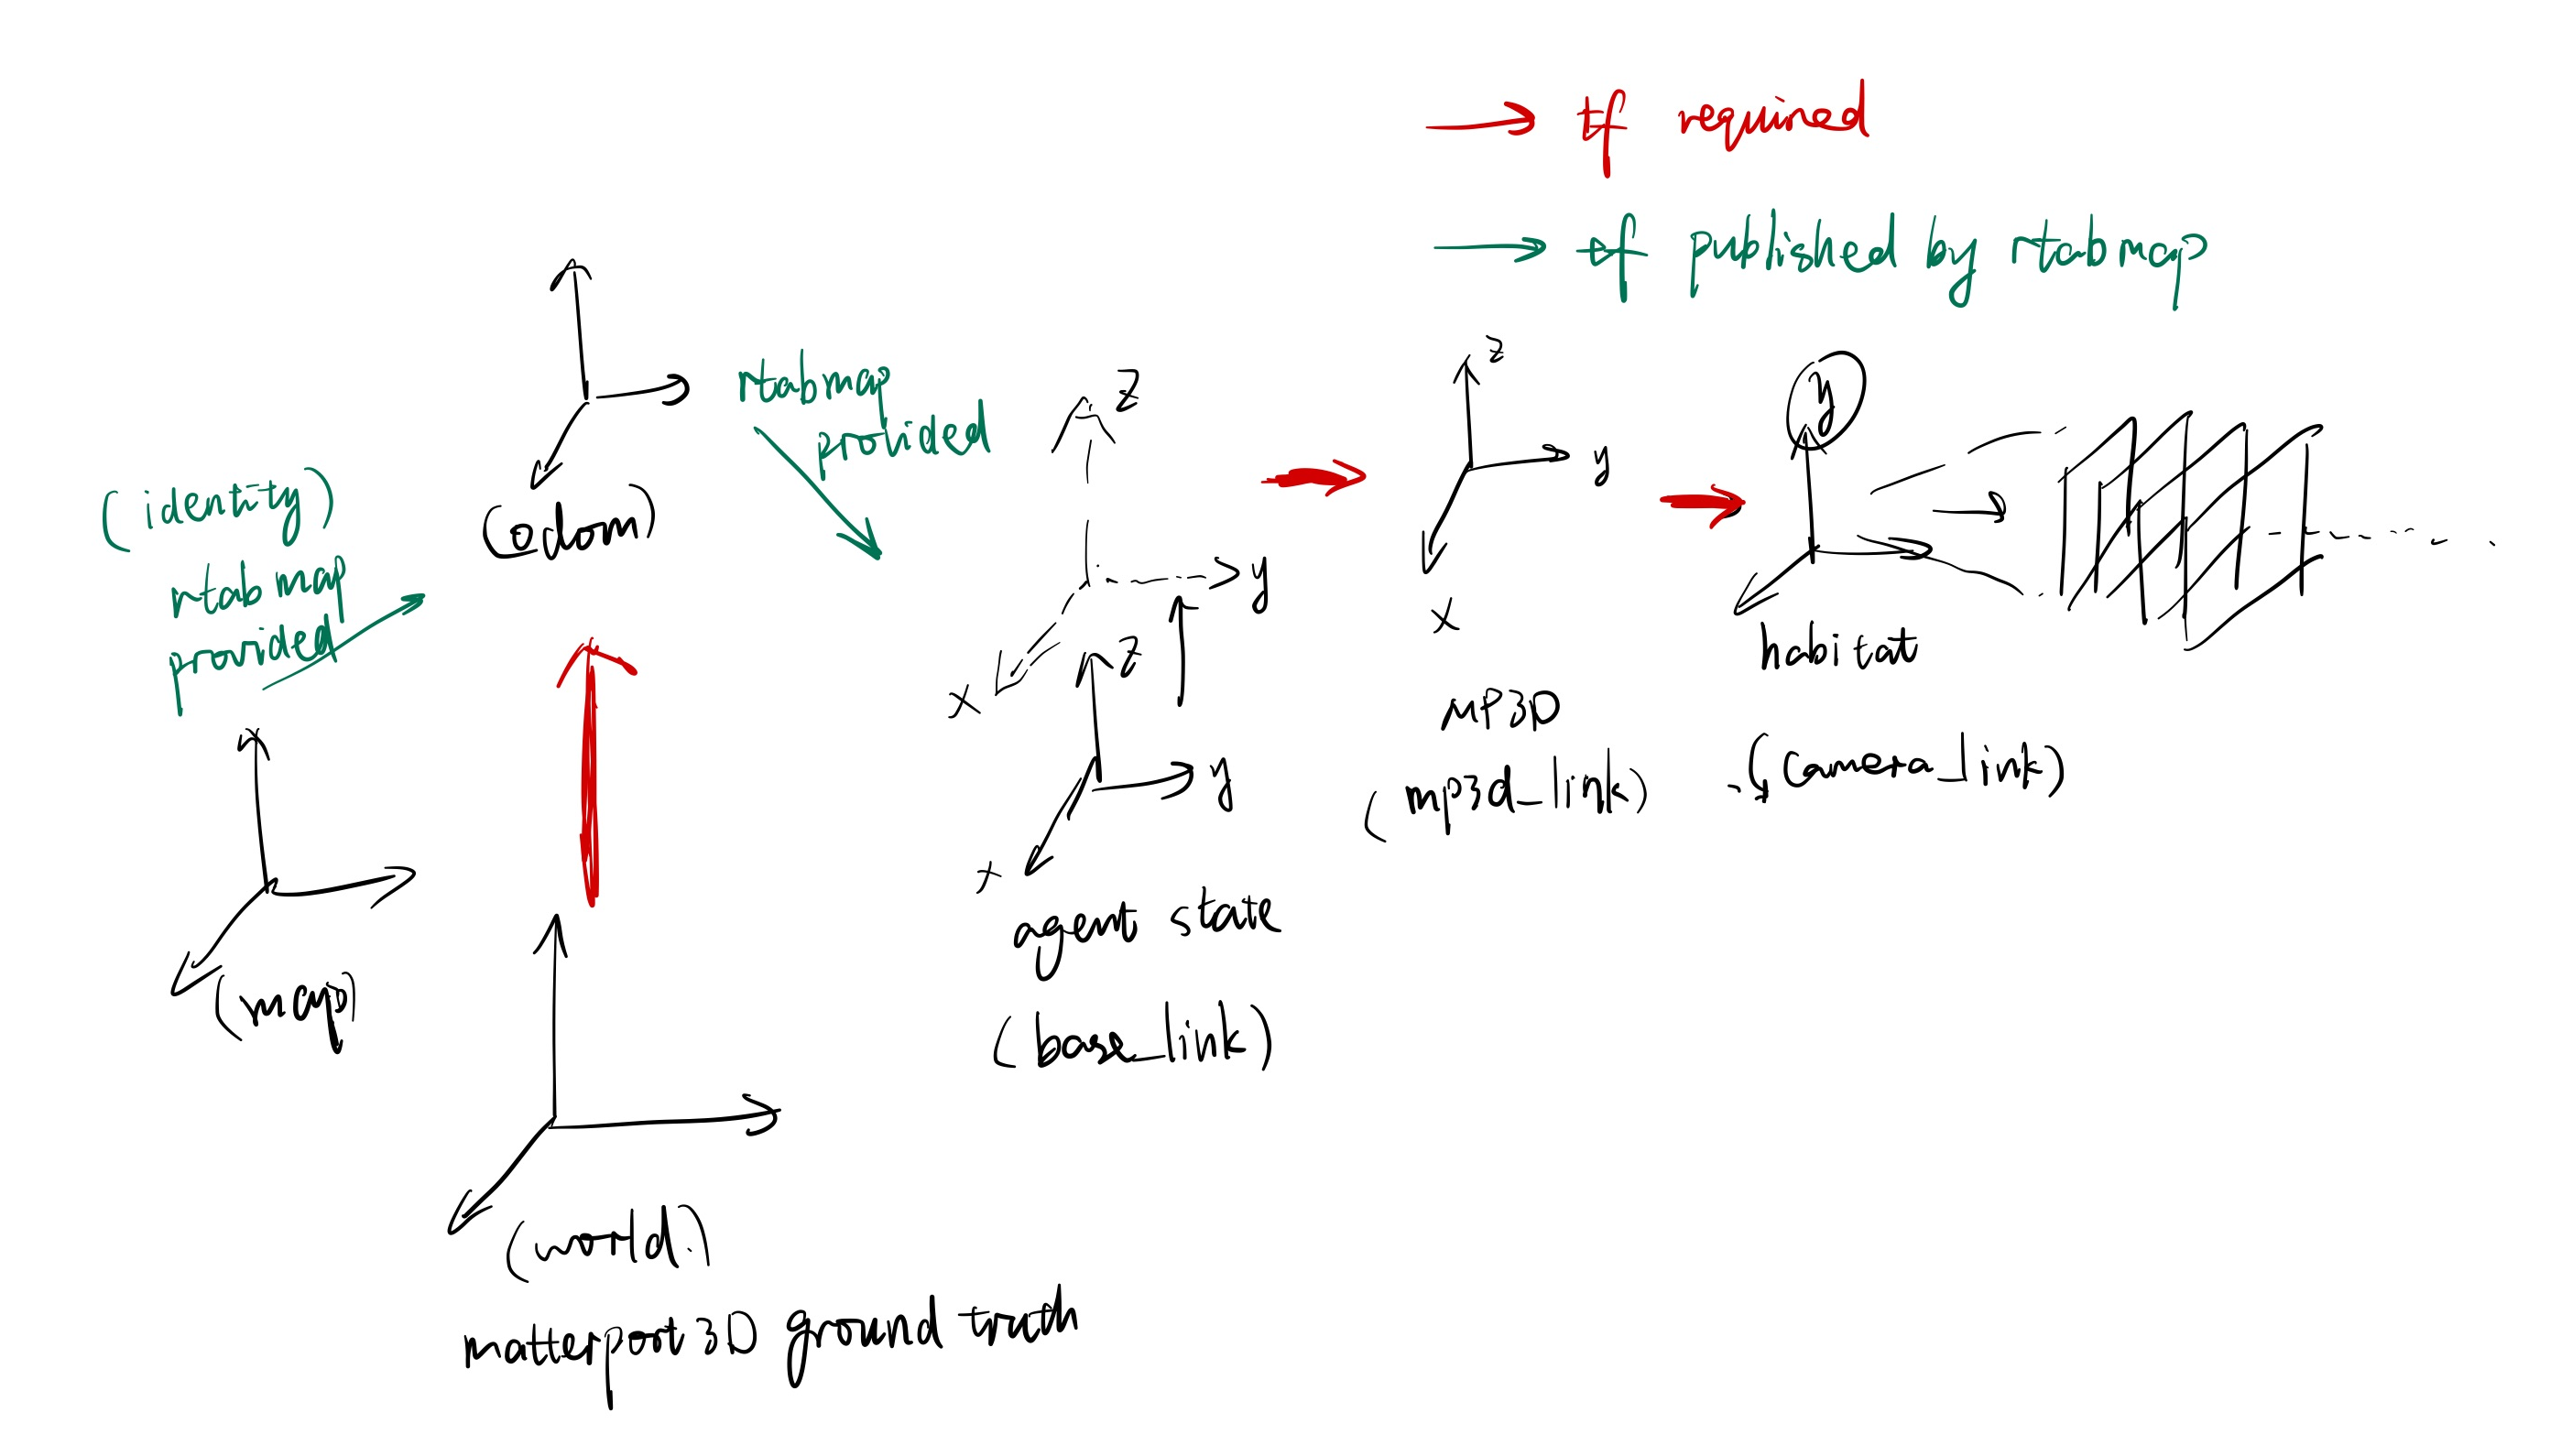 tf required
tf published by rtabmap
rtabmap
provided
(identity)
rtabmap
provided
(odom)
(map)
(world.)
matterport3D ground truth
z
y
x
z
y
x
agent state
(base_link)
z
y
x
MP3D
(mp3d_link)
y
habitat
(camera_link)